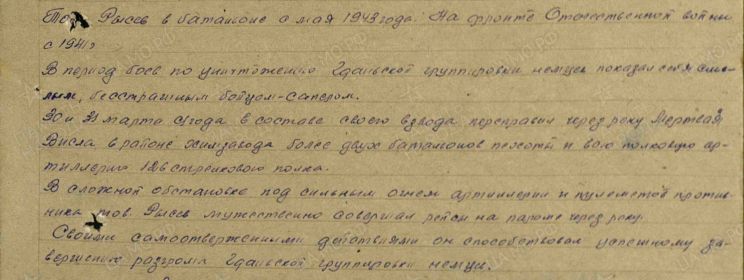 Тов. Рысев в батальоне с мая 1943 года. На фронте Отечественной войны
с 1941 г
В период боев по уничтожению Гданьской группировки немцев показал себя сме-
лым, бесстрашным бойцом-сапером.
30 и 31 марта с/года в составе своего взвода переправил через реку Мертвая
Висла в районе химзавода более двух батальонов пехоты и всю полковую ар-
тиллерию стрелкового полка.
В сложной обстановке под сильным огнем артиллерии и пулеметов против-
ника тов. Рысев мужественно совершал рейсы на пароме через реку.
Своими самоотверженными действиями он способствовал успешному за-
вершению разгрома Гданьской группировки немцев.